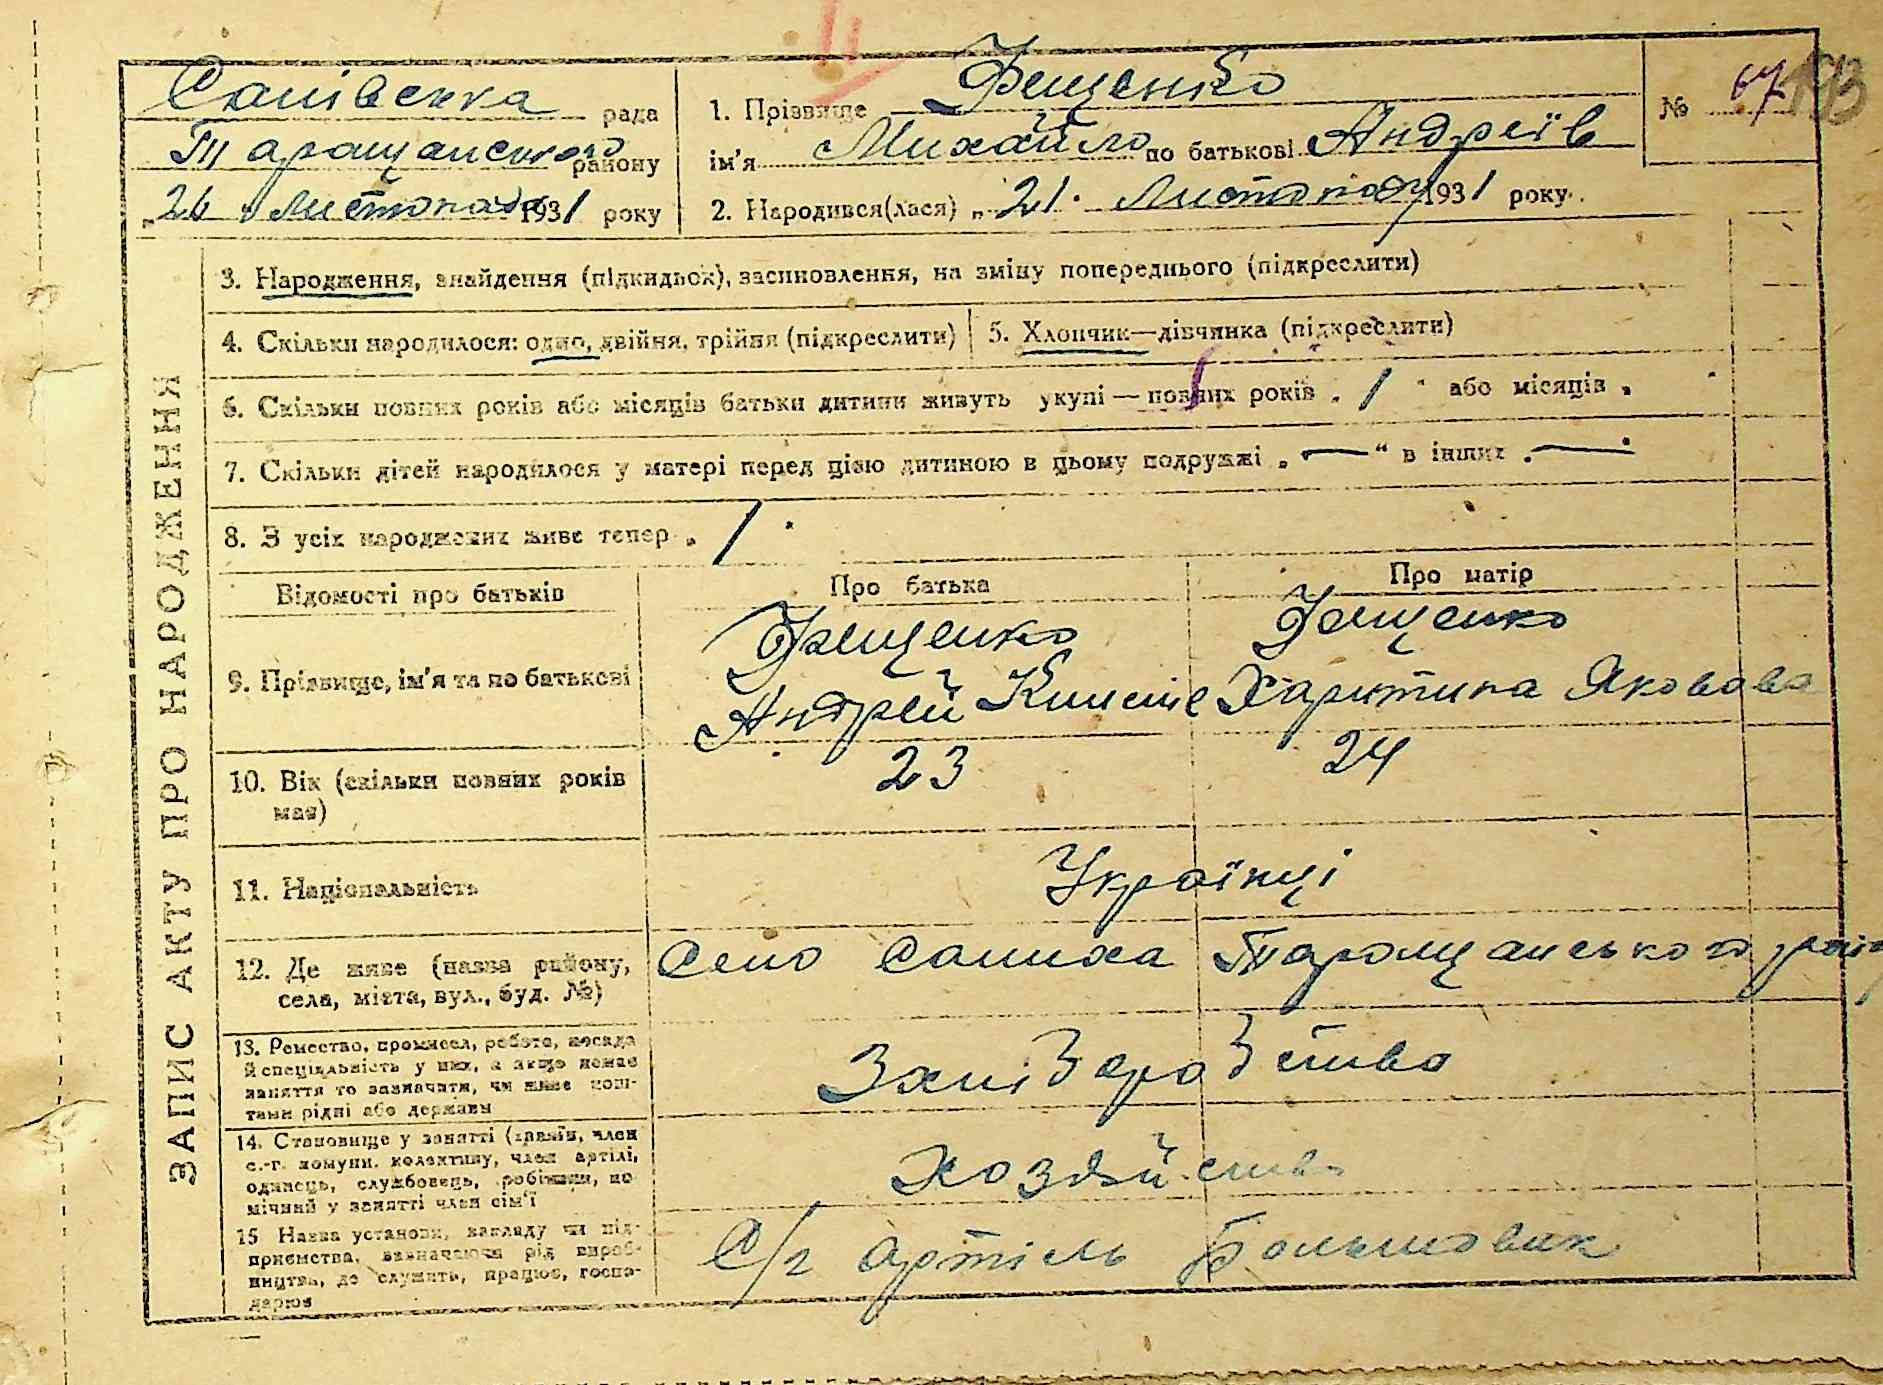 Саливонка рада
Таращанського району
„26 Листопада 1931 року
1. Прізвище Фещенко
ім'я Михайло по батькові Андреїв
2. Народився(лася) „21" Листопаду 1931 року.
№ 67
193
ЗАПИС АКТУ ПРО НАРОДЖЕННЯ
3. Народження, знайдення (підкидьок), засиновлення, на зміну попереднього (підкреслити)
4. Скільки народилося: одно, двійня, трійня (підкреслити)
5. Хлопчик—дівчинка (підкреслити)
6. Скільки повних років або місяців батьки дитини живуть укупі — повних років „1" або місяців „
7. Скільки дітей народилося у матері перед цією дитиною в цьому подружжі „—" в інших „—"
8. З усіх народжених живе тепер „1"
Відомості про батьків
Про батька
Про матір
9. Прізвище, ім'я та по батькові
Фещенко
Андрей
Фещенко
Харитина Яковова
10. Вік (скільки повних років
має)
23
24
11. Національність
Українці
12. Де живе (назва району,
села, міста, вул., буд. №)
Село Салиха Таращанського рай
13. Ремество, промисел, робота, посада
й спеціяльність у них, а якщо немає
заняття то зазначати, чи живе кош-
тами рідні або держави
Хліборобство
14. Становище у занятті (хазяїн, член
с.-г. комуни, колективу, член артілі,
одинець, службовець, робітник, по
мічний у занятті член сім'ї
хозяйство
15 Назва установи, закладу чи під-
приємства, зазначаючи рід вироб-
ництва, де служить, працює, госпо-
дарює
С/г артіль Большовик